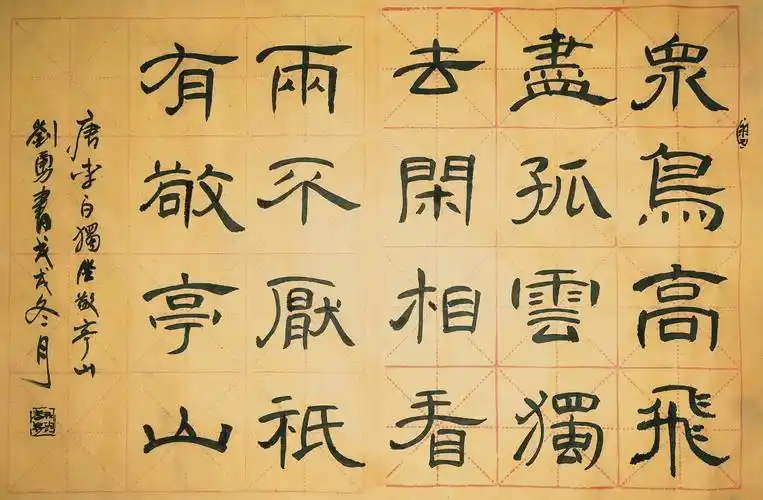 眾鳥高飛
盡孤雲獨
去閑相看
兩不厭祇
有敬亭山
唐李白獨坐敬亭山
劉勇書戊戌冬月